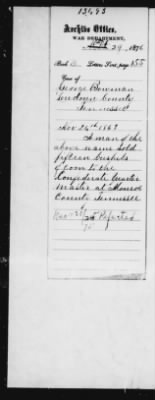 Archive Office,
WAR DEPARTMENT,
29, 1876
Book Letters Sent, page 355
Case of
George Bowman
Loudon County
Tennessee
Nov 26th 1863
A man of the
above name sold
fifteen bushels
Corn to the
Confederate Quarter
Master at Monroe
County Tennessee
Reported